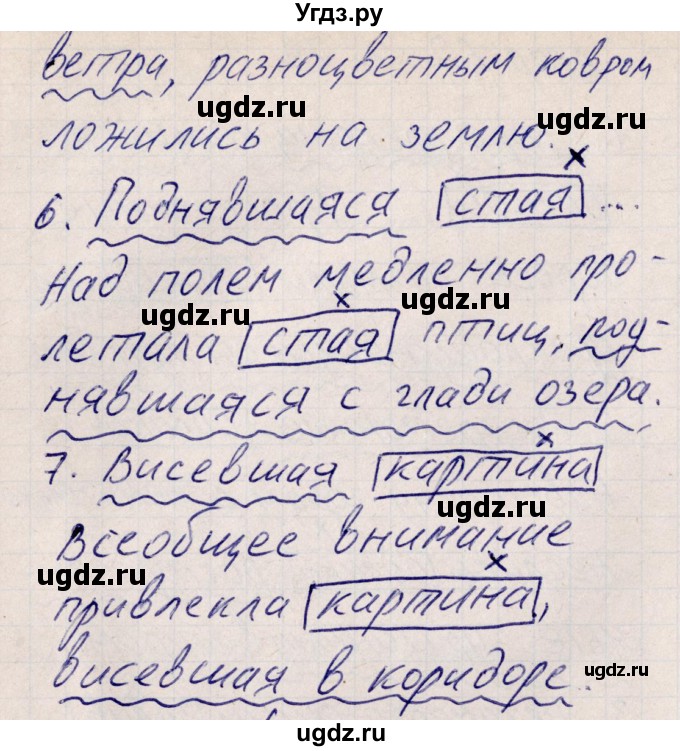 Угдз.ру
ветра, разноцветным ковром
ugdz.ru
ugdz.ru
ложились на землю.
6. Поднявшаяся стая ...
Над полем медленно про-
ugdz.ru
ugdz.ru
летала стая птиц, под-
нявшаяся с глади озера.
7. Висевшая картина
ugdz.ru
Всеобщее внимание
ugdz.ru
привлекла картина,
висевшая в коридоре.
ugdz.ru
ugdz.ru